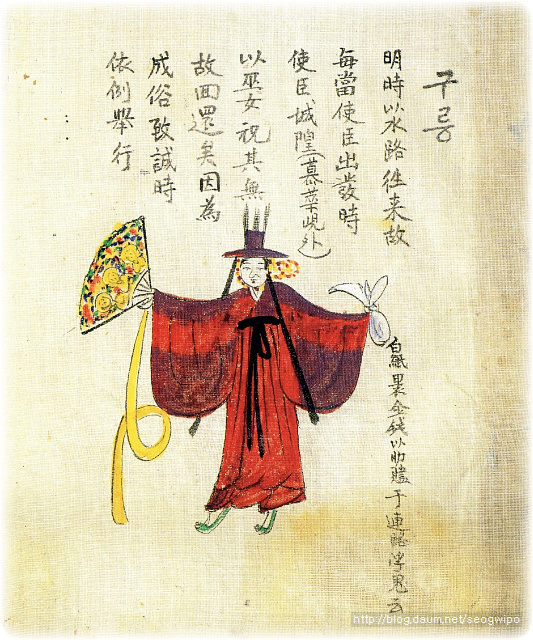 구릉
明時以水路往来故
每當使臣出發時
使臣城隍(慕華峴外)
以巫女祝其無
故回還矣因為
成俗致誠時
依例擧行
白紙裹金錢以助于連浮鬼云
http://blog.daum.net/seogwipo